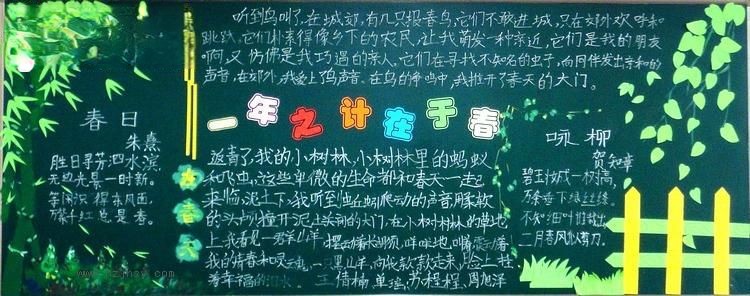 听到鸟叫了,在城郊,有几只报喜鸟,它们不敢进城,只在郊外欢呼和
跳跃,它们朴素得像乡下的农民,让我萌发一种亲近,它们是我的朋友
啊,又仿佛是我巧遇的亲人,它们在寻找不知名的虫子,向同伴发出亲和的
声音,在郊外,我爱上了鸟声音。在鸟的争鸣中,我推开了春天的大门。
一年之计在于春
春日
朱熹
胜日寻芳泗水滨
无边光景一时新。
等闲识得东风面,
万紫千红总是春。
返青了,我的小树林,小树林里的蚂蚁
和飞虫,这些卑微的生命都和春天一起
来临,泥土下,我听到虫蚯蚓爬动的声音用
的头 撞开泥土 的大门,在小树林的草地
上,我看见一群山羊 咩咩地
我的青春和 一只黑山羊,向我款款走来,
李 王倩楠 单瑞,苏程程,周旭洋
咏柳
贺知章
碧玉妆成一树高,
万条垂下绿丝绦。
不知细叶谁裁出,
二月春风似剪刀。